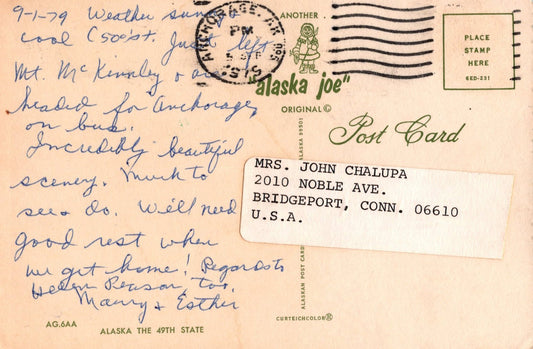 9-1-79 Weather sunny &
cool (50's). Just left
Mt. McKinnley & are
headed for Anchorage,
on bus.
Incredibly beautiful
scenery. Much to
see & do. We'll need
good rest when
we get home! Regards to
Helen Pearson, too.
Maury & Esther
AG.6AA
ALASKA THE 49TH STATE
ANCHORAGE, AK 995
PM
SEP
ANOTHER
"alaska joe"
ORIGINAL ©
Post Card
PLACE
STAMP
HERE
6ED-231
MRS. JOHN CHALUPA
2010 NOBLE AVE.
BRIDGEPORT, CONN. 06610
U.S.A.
ALASKA 99501
ALASKAN POST CARD
CURTEICHCOLOR®